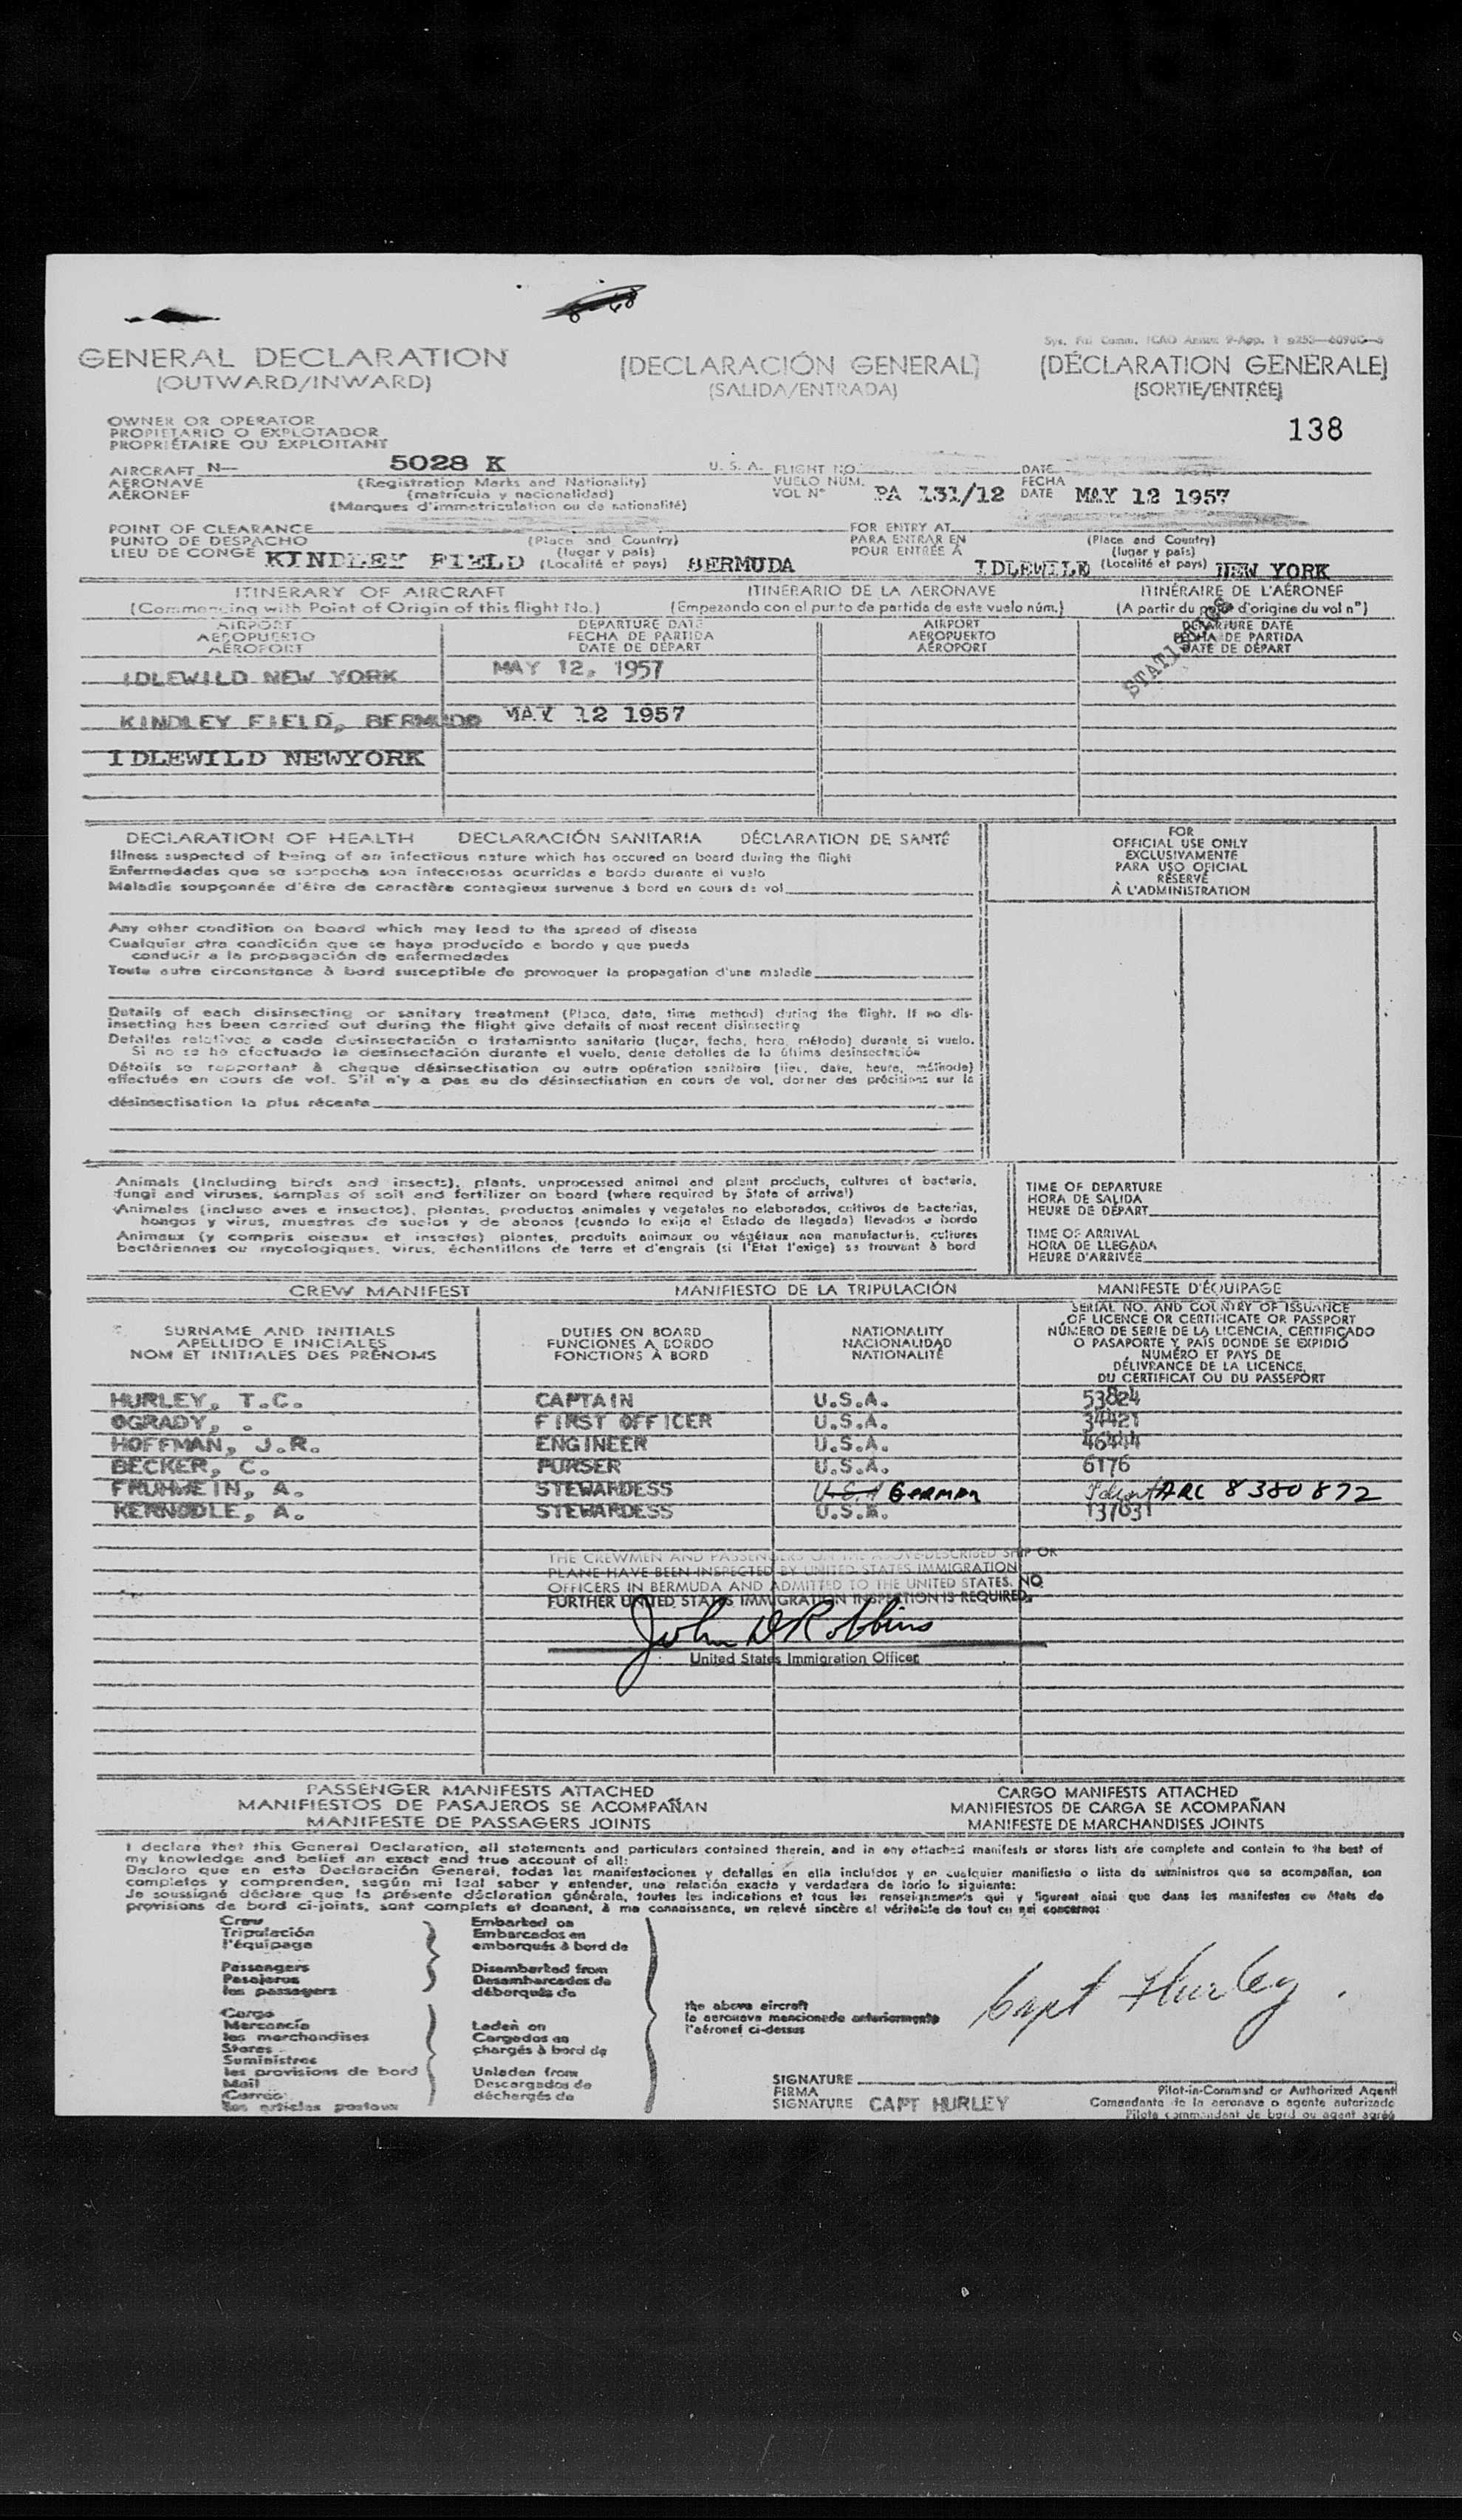 GENERAL DECLARATION
(OUTWARD/INWARD)
(DECLARACIÓN GENERAL)
(SALIDA/ENTRADA)
(DÉCLARATION GENERALE)
(SORTIE/ENTRÉE)
138
OWNER OR OPERATOR
PROPIETARIO O EXPLOTADOR
PROPRIÉTAIRE OU EXPLOITANT
AIRCRAFT N— 5028 K U. S. A.
AERONAVE (Registration Marks and Nationality)
AÉRONEF (matrícula y nacionalidad)
(Marques d'immatriculation ou de nationalité)
FLIGHT NO.
VUELO NÚM.
VOL N° PA 131/12
DATE
FECHA
DATE MAY 12 1957
POINT OF CLEARANCE (Place and Country)
PUNTO DE DESPACHO (lugar y país)
LIEU DE CONGÉ KINDLEY FIELD (Localité et pays) BERMUDA
FOR ENTRY AT (Place and Country)
PARA ENTRAR EN (lugar y país)
POUR ENTRÉE À IDLEWILD (Localité et pays) NEW YORK
ITINERARY OF AIRCRAFT ITINERARIO DE LA AERONAVE ITINÉRAIRE DE L'AÉRONEF
(Commencing with Point of Origin of this flight No.) (Empezando con el punto de partida de este vuelo núm.) (A partir du d'origine du vol n°)
AIRPORT DEPARTURE DATE AIRPORT DEPARTURE DATE
AEROPUERTO FECHA DE PARTIDA AEROPUERTO FECHA DE PARTIDA
AÉROPORT DATE DE DÉPART AÉROPORT DATE DE DÉPART
IDLEWILD NEW YORK MAY 12, 1957
KINDLEY FIELD, BERMUDA MAY 12 1957
IDLEWILD NEWYORK
DECLARATION OF HEALTH DECLARACIÓN SANITARIA DÉCLARATION DE SANTÉ
Illness suspected of being of an infectious nature which has occured on board during the flight
Enfermedades que se sospecha son infecciosas ocurridas a bordo durante el vuelo
Maladie soupçonnée d'être de caractère contagieux survenue à bord en cours de vol
FOR
OFFICIAL USE ONLY
EXCLUSIVAMENTE
PARA USO OFICIAL
RÉSERVÉ
À L'ADMINISTRATION
Any other condition on board which may lead to the spread of disease
Cualquier otra condición que se haya producido a bordo y que pueda
conducir a la propagación de enfermedades
Toute autre circonstance à bord susceptible de provoquer la propagation d'une maladie
Details of each disinsecting or sanitary treatment (Place, date, time method) during the flight. If no dis-
insecting has been carried out during the flight give details of most recent disinsecting
Detalles relativos a cada desinsectación o tratamiento sanitario (lugar, fecha, hora, método) durante el vuelo.
Si no se ha efectuado la desinsectación durante el vuelo, dense detalles de la última desinsectación
Détails se rapportant à chaque désinsectisation ou autre opération sanitaire (lieu, date, heure, méthode)
effectuée en cours de vol. S'il n'y a pas eu de désinsectisation en cours de vol, donner des précisions sur la
désinsectisation la plus récente
Animals (Including birds and insects), plants, unprocessed animal and plant products, cultures of bacteria,
fungi and viruses, samples of soil and fertilizer on board (where required by State of arrival)
Animales (incluso aves e insectos), plantas, productos animales y vegetales no elaborados, cultivos de bacterias,
hongos y virus, muestras de suelos y de abonos (cuando lo exija el Estado de llegada) llevados a bordo
Animaux (y compris oiseaux et insectes) plantes, produits animaux ou végétaux non manufacturés, cultures
bactériennes ou mycologiques, virus, échantillons de terre et d'engrais (si l'Etat l'exige) se trouvant à bord
TIME OF DEPARTURE
HORA DE SALIDA
HEURE DE DÉPART
TIME OF ARRIVAL
HORA DE LLEGADA
HEURE D'ARRIVÉE
CREW MANIFEST MANIFIESTO DE LA TRIPULACIÓN MANIFESTE D'ÉQUIPAGE
SURNAME AND INITIALS
APELLIDO E INICIALES
NOM ET INITIALES DES PRÉNOMS
DUTIES ON BOARD
FUNCIONES A BORDO
FONCTIONS À BORD
NATIONALITY
NACIONALIDAD
NATIONALITÉ
SERIAL NO. AND COUNTRY OF ISSUANCE
OF LICENCE OR CERTIFICATE OR PASSPORT
NÚMERO DE SERIE DE LA LICENCIA, CERTIFICADO
O PASAPORTE Y PAÍS DONDE SE EXPIDIÓ
NUMÉRO ET PAYS DE
DÉLIVRANCE DE LA LICENCE,
DU CERTIFICAT OU DU PASSEPORT
HURLEY, T.C. CAPTAIN U.S.A. 53824
OGRADY, . FIRST OFFICER U.S.A. 34421
HOFFMAN, J.R. ENGINEER U.S.A. 46444
BECKER, C. PURSER U.S.A. 6176
FRUHWEIN, A. STEWARDESS U.S.A GERMAN ARC 8380872
KERNODLE, A. STEWARDESS U.S.A. 137631
THE CREWMEN AND PASSENGERS ON THE ABOVE-DESCRIBED SHIP OR
PLANE HAVE BEEN INSPECTED BY UNITED STATES IMMIGRATION
OFFICERS IN BERMUDA AND ADMITTED TO THE UNITED STATES. NO
FURTHER UNITED STATES IMMIGRATION INSPECTION IS REQUIRED.
John D Robbins
United States Immigration Officer
PASSENGER MANIFESTS ATTACHED
MANIFIESTOS DE PASAJEROS SE ACOMPAÑAN
MANIFESTE DE PASSAGERS JOINTS
CARGO MANIFESTS ATTACHED
MANIFIESTOS DE CARGA SE ACOMPAÑAN
MANIFESTE DE MARCHANDISES JOINTS
I declare that this General Declaration, all statements and particulars contained therein, and in any attached manifests or stores lists are complete and contain to the best of
my knowledge and belief an exact and true account of all:
Declaro que en esta Declaración General, todas las manifestaciones y detalles en ella incluidos y en cualquier manifiesto o lista de suministros que se acompañan, son
completos y comprenden, según mi leal saber y entender, una relación exacta y verdadera de todo lo siguiente:
Je soussigné déclare que la présente déclaration générale, toutes les indications et tous les renseignements qui y figurent ainsi que dans les manifestes ou états de
provisions de bord ci-joints, sont complets et donnent, à ma connaissance, un relevé sincère et véritable de tout ce qui concerne:
Crew
Tripulación
l'équipage
Passengers
Pasajeros
les passagers
Cargo
Mercancía
les marchandises
Stores
Suministros
les provisions de bord
Mail
Correo
les articles postaux
Embarked on
Embarcados en
embarqués à bord de
Disembarked from
Desembarcados de
débarqués de
Laden on
Cargados en
chargés à bord de
Unladen from
Descargados de
déchargés de
the above aircraft
la aeronave mencionada anteriormente
l'aéronef ci-dessus
Capt Hurley.
SIGNATURE
FIRMA
SIGNATURE CAPT HURLEY
Pilot-in-Command or Authorized Agent
Comandante de la aeronave o agente autorizado
Pilote commandant de bord ou agent agréé